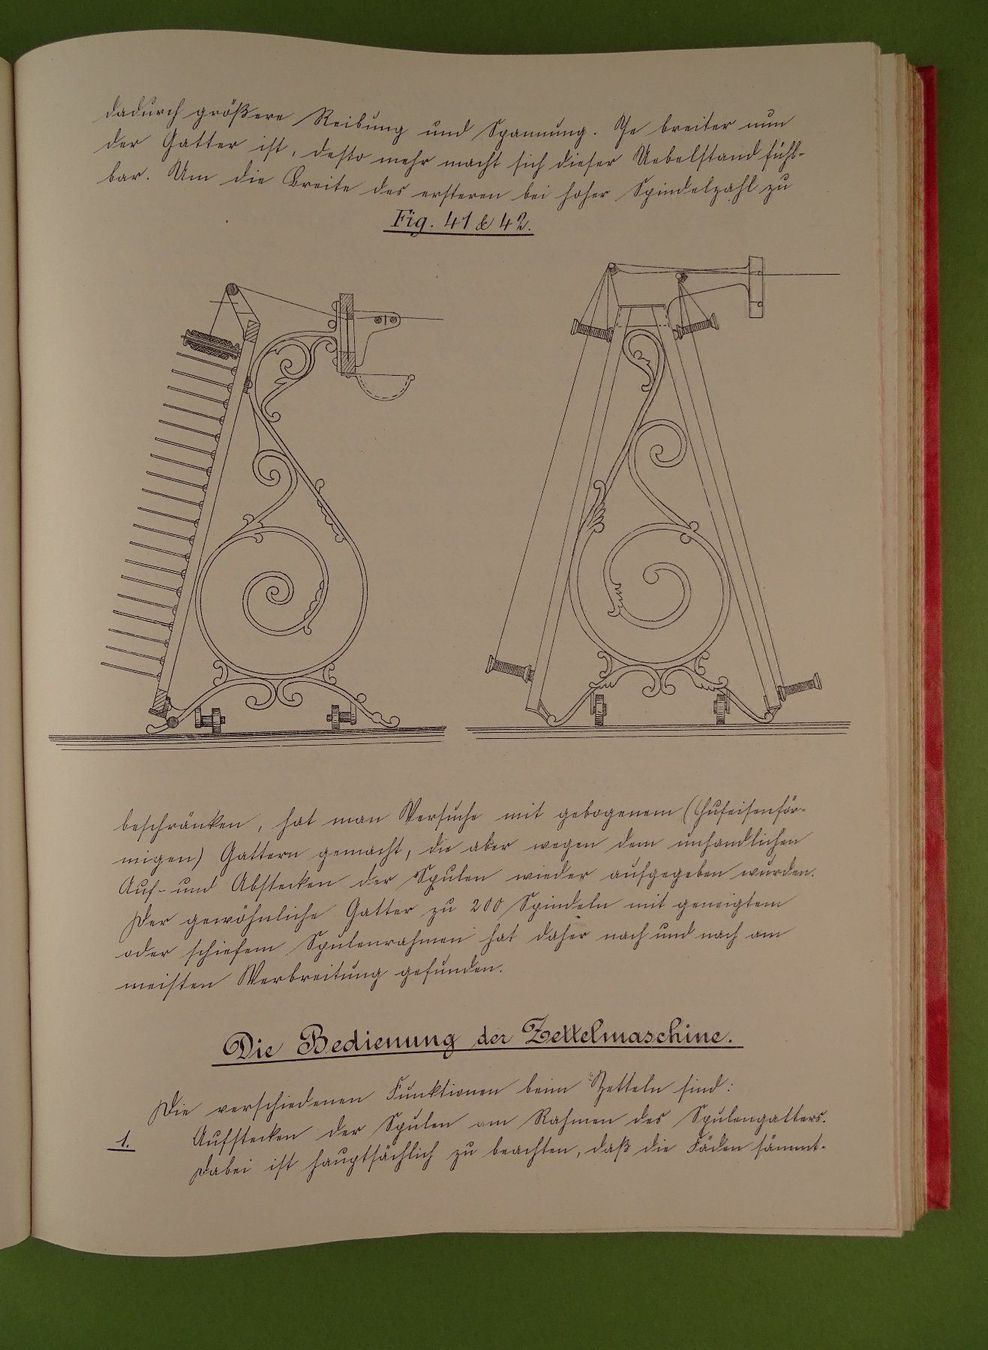 dadurch größere Reibung und Spannung. Je breiter nun
der Gatter ist, desto mehr macht sich dieser Uebelstand fühl-
bar. Um die Breite des ersteren bei hoher Spindelzahl zu
Fig. 41 & 42.
beschränken, hat man Versuche mit gebogenem (hufeisenför-
migen) Gattern gemacht, die aber wegen dem unhandlichen
Auf- und Abstecken der Spulen wieder aufgegeben wurden.
Der gewöhnliche Gatter zu 200 Spindeln mit geneigtem
oder schiefem Spulenrahmen hat daher nach und nach am
meisten Verbreitung gefunden.
Die Bedienung der Zettelmaschine.
Die verschiedenen Funktionen beim Zetteln sind:
1. Aufstecken der Spulen am Rahmen des Spulengatters.
Dabei ist hauptsächlich zu beachten, daß die Fäden sämmt-